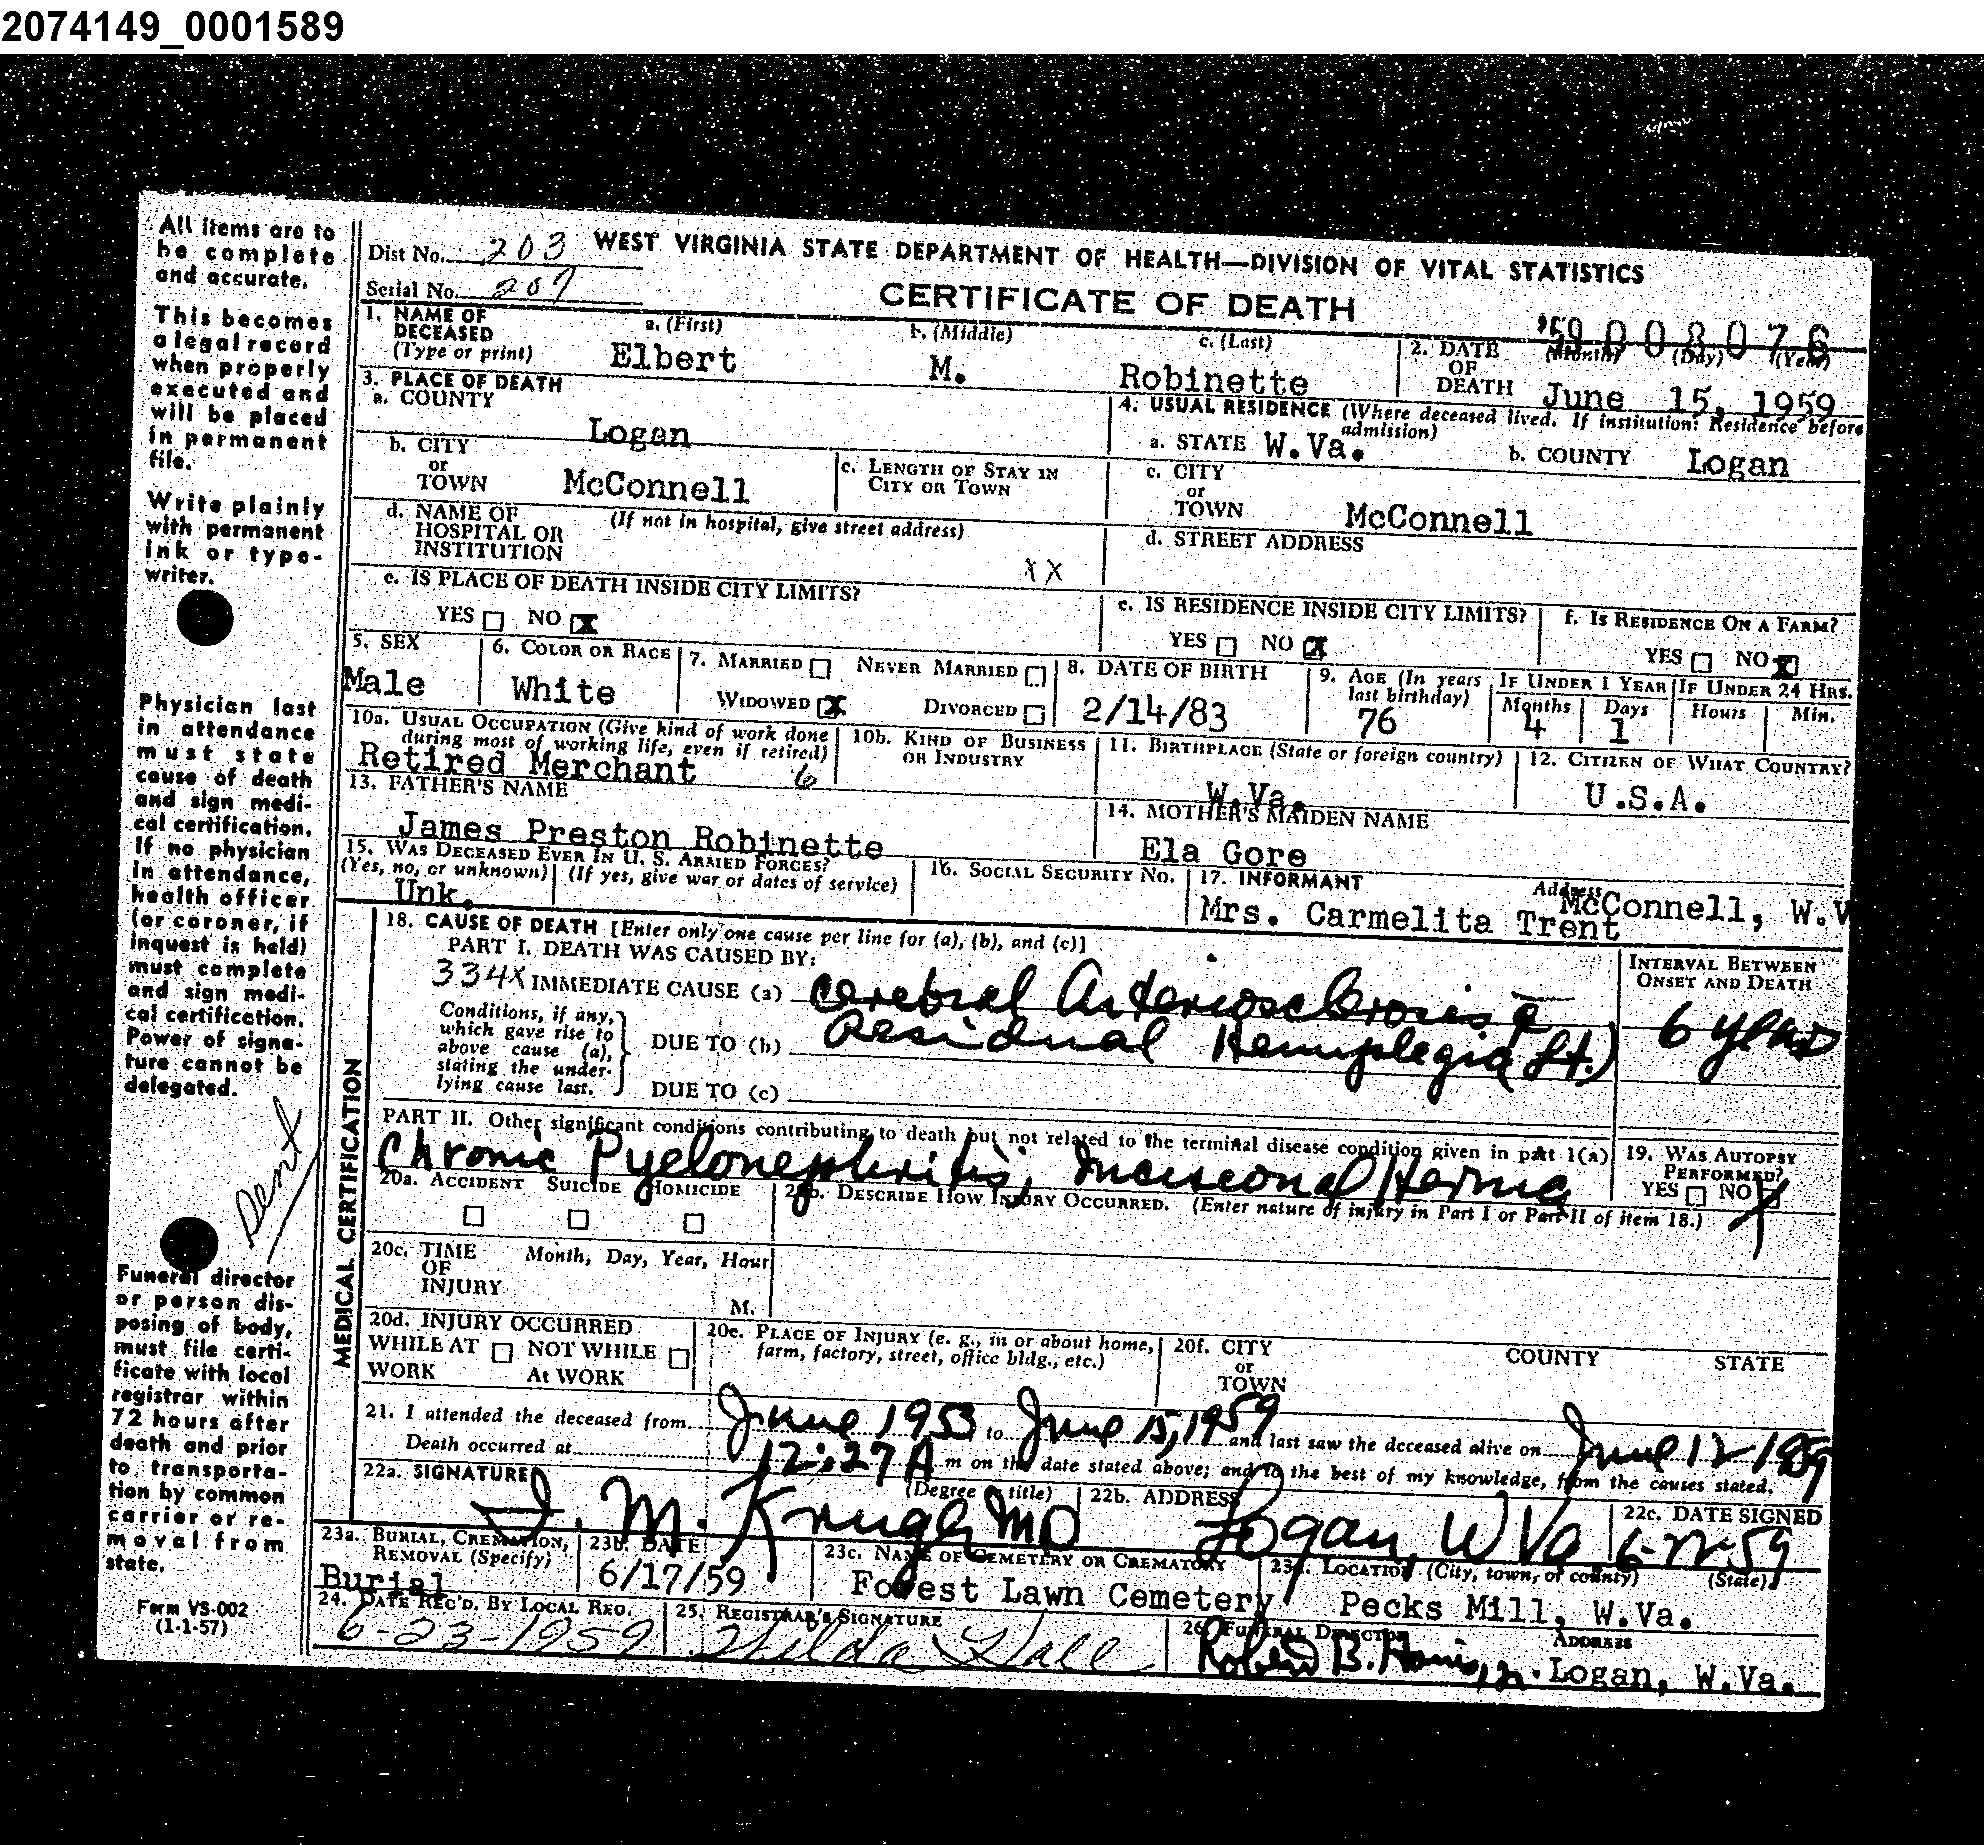 2074149_0001589
All items are to
be complete
and accurate.
This becomes
a legal record
when properly
executed and
will be placed
in permanent
file.
Write plainly
with permanent
ink or type-
writer.
Physician last
in attendance
must state
cause of death
and sign medi-
cal certification.
If no physician
in attendance,
health officer
(or coroner, if
inquest is held)
must complete
and sign medi-
cal certification.
Power of signa-
ture cannot be
delegated.
Dent
Funeral director
or person dis-
posing of body,
must file certi-
ficate with local
registrar within
72 hours after
death and prior
to transporta-
tion by common
carrier or re-
moval from
state.
Form VS-002
(1-1-57)
Dist No. 203 WEST VIRGINIA STATE DEPARTMENT OF HEALTH—DIVISION OF VITAL STATISTICS
Serial No. 207 CERTIFICATE OF DEATH
'59 008076
1. NAME OF DECEASED (Type or print) a. (First) Elbert b. (Middle) M. c. (Last) Robinette
2. DATE OF DEATH (Month) (Day) (Year) June 15, 1959
3. PLACE OF DEATH
a. COUNTY Logan
4. USUAL RESIDENCE (Where deceased lived. If institution: Residence before admission)
a. STATE W.Va. b. COUNTY Logan
b. CITY or TOWN McConnell c. LENGTH OF STAY IN CITY OR TOWN
c. CITY or TOWN McConnell
d. NAME OF HOSPITAL OR INSTITUTION (If not in hospital, give street address) XX
d. STREET ADDRESS
e. IS PLACE OF DEATH INSIDE CITY LIMITS? YES NO X
e. IS RESIDENCE INSIDE CITY LIMITS? YES NO X
f. IS RESIDENCE ON A FARM? YES NO X
5. SEX Male 6. COLOR OR RACE White 7. MARRIED NEVER MARRIED WIDOWED X DIVORCED
8. DATE OF BIRTH 2/14/83 9. AGE (In years last birthday) 76 IF UNDER 1 YEAR Months 4 Days 1 IF UNDER 24 HRS. Hours Min.
10a. USUAL OCCUPATION (Give kind of work done during most of working life, even if retired) Retired Merchant 6
10b. KIND OF BUSINESS OR INDUSTRY
11. BIRTHPLACE (State or foreign country) W.Va. 12. CITIZEN OF WHAT COUNTRY? U.S.A.
13. FATHER'S NAME James Preston Robinette
14. MOTHER'S MAIDEN NAME Ela Gore
15. WAS DECEASED EVER IN U. S. ARMED FORCES? (Yes, no, or unknown) Unk. (If yes, give war or dates of service)
16. SOCIAL SECURITY NO. 17. INFORMANT Mrs. Carmelita Trent Address McConnell, W.V
MEDICAL CERTIFICATION
18. CAUSE OF DEATH [Enter only one cause per line for (a), (b), and (c)]
PART I. DEATH WAS CAUSED BY:
334X IMMEDIATE CAUSE (a) Cerebral Arteriosclerosis c̄
INTERVAL BETWEEN ONSET AND DEATH 6 years
Conditions, if any, which gave rise to above cause (a), stating the under-lying cause last.
DUE TO (b) Residual Hemiplegia (Lt.)
DUE TO (c)
PART II. Other significant conditions contributing to death but not related to the terminal disease condition given in part 1(a)
Chronic Pyelonephritis; Incisional Hernia
19. WAS AUTOPSY PERFORMED? YES NO X
20a. ACCIDENT SUICIDE HOMICIDE 20b. DESCRIBE HOW INJURY OCCURRED. (Enter nature of injury in Part I or Part II of item 18.)
20c. TIME OF INJURY Month, Day, Year, Hour M.
20d. INJURY OCCURRED WHILE AT WORK NOT WHILE AT WORK
20e. PLACE OF INJURY (e. g., in or about home, farm, factory, street, office bldg., etc.)
20f. CITY or TOWN COUNTY STATE
21. I attended the deceased from June 1953 to June 15, 1959 and last saw the deceased alive on June 12 1959
Death occurred at 12:27 A m on the date stated above; and to the best of my knowledge, from the causes stated.
22a. SIGNATURE (Degree or title) MD 22b. ADDRESS Logan, W Va 22c. DATE SIGNED
23a. BURIAL, CREMATION, REMOVAL (Specify) Burial 23b. DATE 6/17/59
23c. NAME OF CEMETERY OR CREMATORY Forest Lawn Cemetery
23d. LOCATION (City, town, or county) (State) Pecks Mill, W.Va.
24. DATE REC'D. BY LOCAL REG. 6-23-1959 25. REGISTRAR'S SIGNATURE Hilda Hall
26. FUNERAL DIRECTOR Robert B. Harris, Jr. ADDRESS Logan, W.Va.